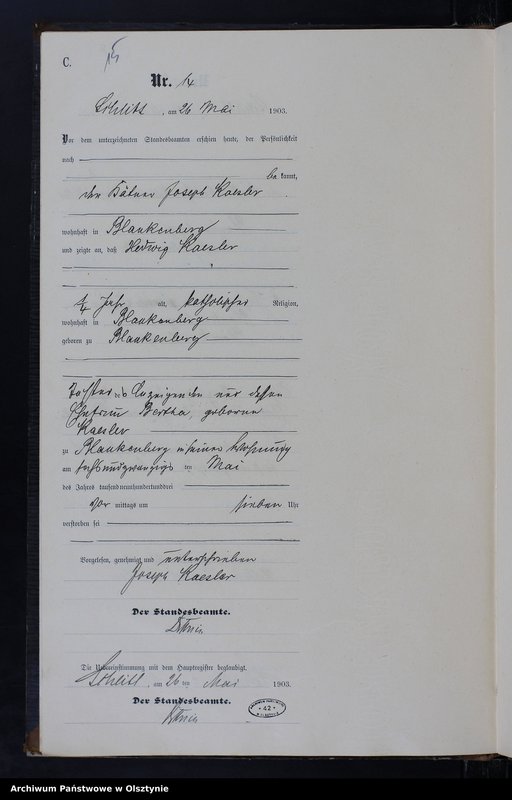 C.
15
Nr. 14
Schlitt, am 26 Mai 1903.
Vor dem unterzeichneten Standesbeamten erschien heute, der Persönlichkeit
nach
be kannt,
der Kätner Joseph Kaesler
wohnhaft in Blankenberg
und zeigte an, daß Hedwig Kaesler
Jahr alt, katholischer Religion,
wohnhaft in Blankenberg
geboren zu Blankenberg
Tochter des Anzeigenden und dessen
Ehefrau Bertha, geborene
Kaesler
zu Blankenberg in seiner Wohnung
am sechsundzwanzigsten Mai
des Jahres tausendneunhundertunddrei
Vor mittags um sieben Uhr
verstorben sei
Vorgelesen, genehmigt und unterschrieben
Joseph Kaesler
Der Standesbeamte.
Die Uebereinstimmung mit dem Hauptregister beglaubigt.
Schlitt, am 26 ten Mai 1903.
Der Standesbeamte.
42
Archiwum Państwowe w Olsztynie